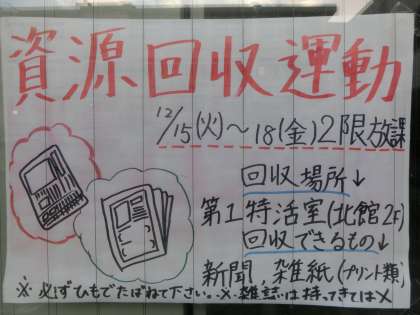 資源回収運動
12/15(火)～18(金)2限放課
回収場所↓
第1特活室(北館2F)
回収できるもの↓
新聞、雑紙(プリント類)
※必ずひもでたばねて下さい。※雑誌は持ってきては×